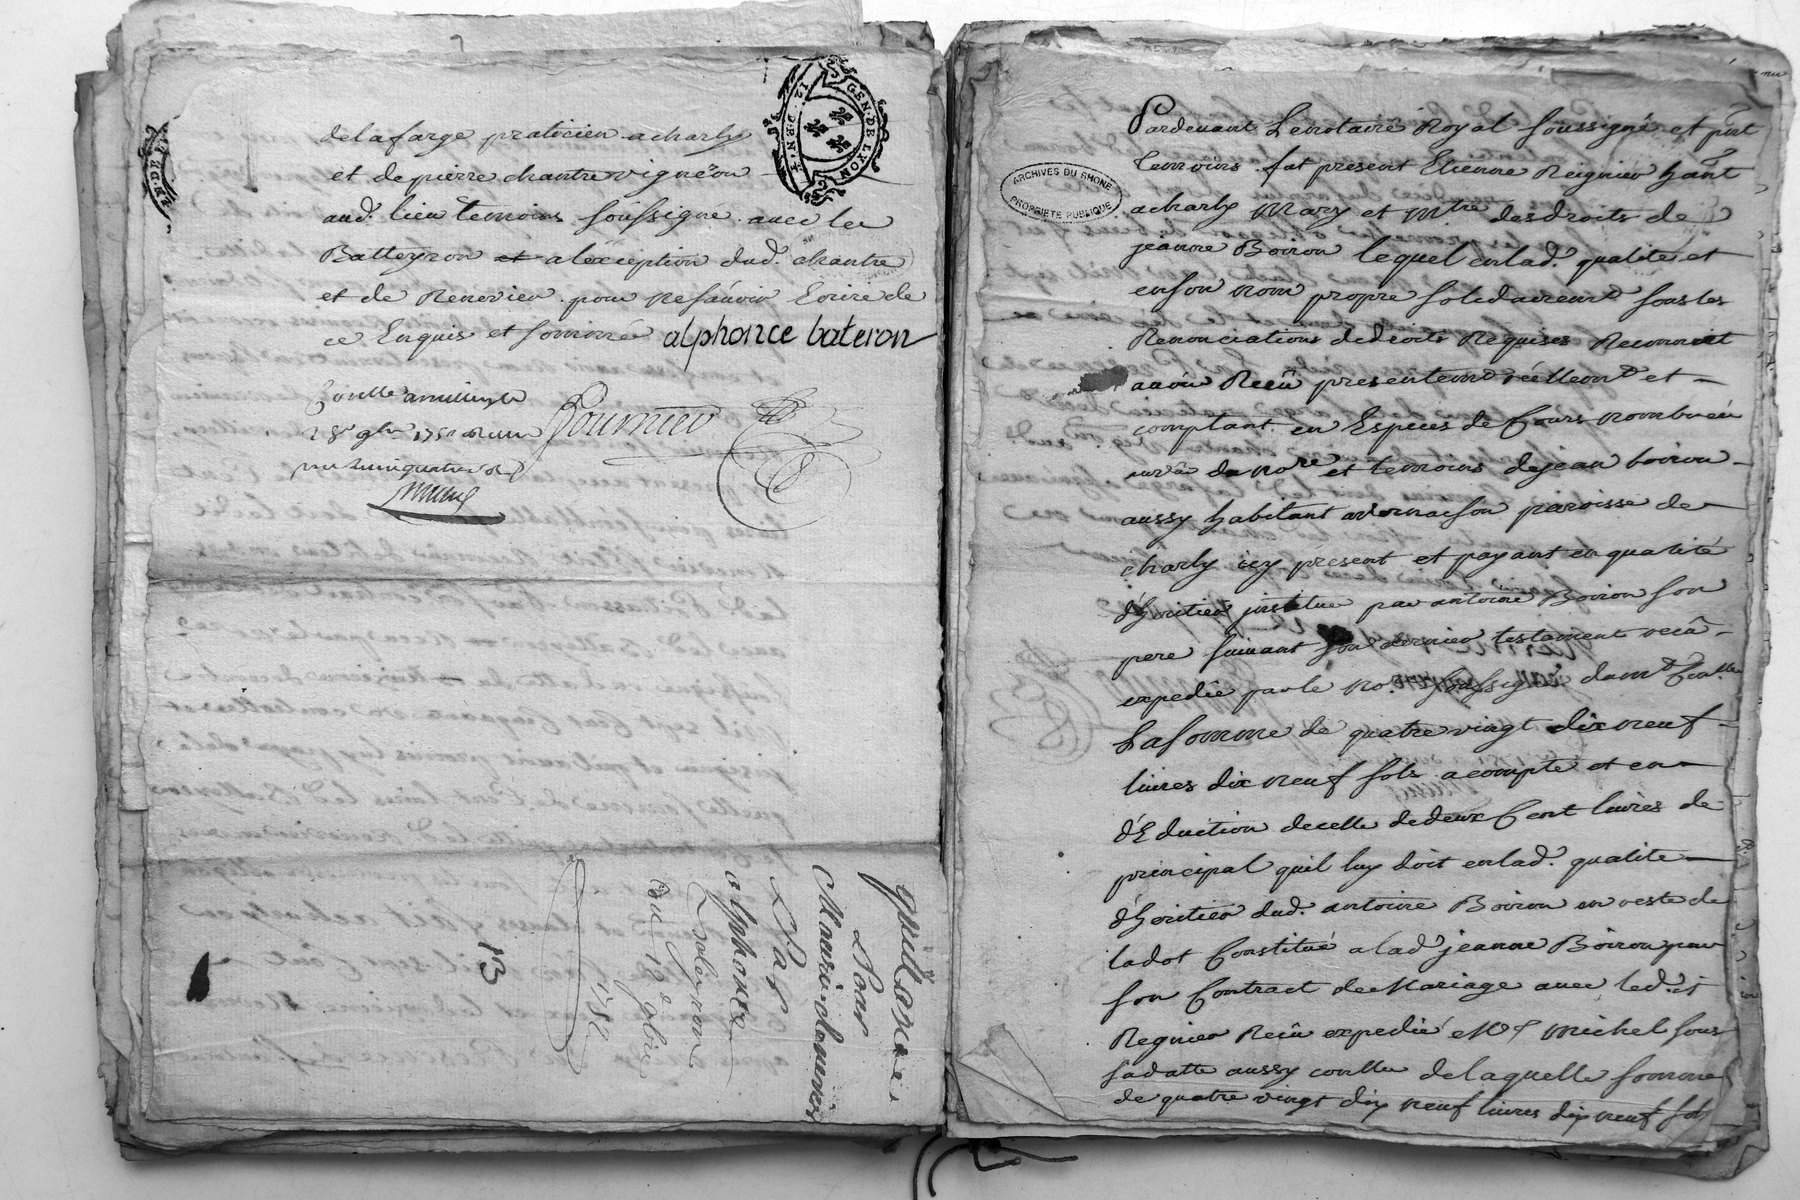 de la farge praticien a charly
et de pierre chantre vigneron
aud. lieu temoins soussigné avec led
Batteyron et a l'exception dud. chantre
et de Renevier pour ne sçavoir Ecrire de
ce Enquis et sommé alphonce bateron
Conllé a millery le
28e 9bre 1752
Fournier
GEN. DE LYON
12 DEN.
quittance
Pour
Par
alphonce
Bateyron
Du 18e 9bre
1752
13
Pardevant Le notaire Royal soussigné et pnt
temoins fut present Etienne Reignier hant
a charly Mary et Mtre des droits de
jeanne Boiron lequel en lad. qualité et
en son nom propre solidairemt sous les
Renonciations de droits Requises Reconnoit
avoir Reçû presentemt réellemt et
comptant en Especes de Cours nombrées
au vû du nore et temoins de jean boiron
aussy habitant a vernaison paroisse de
charly icy présent et payant en qualité
d'heritier institué par antoine Boiron son
pere suivant son dernier testament reçû
expedié par le no. soussigné dumt Conllé
La somme de quatre vingt dix neuf
livres dix neuf sols a compte et en
d'Eduction de celle de deux Cent livres de
principal quil luy doit en lad. qualité
d'heritier dud. antoine Boiron en reste de
la dot Constitué a lad. jeanne Boiron par
son Contract de Mariage avec led. st
Regnier Reçû expedié Me michel sous
sa datte aussy conllé de laquelle somme
de quatre vingt dix neuf livres dix neuf sols
ARCHIVES DU RHONE
PROPRIETE PUBLIQUE